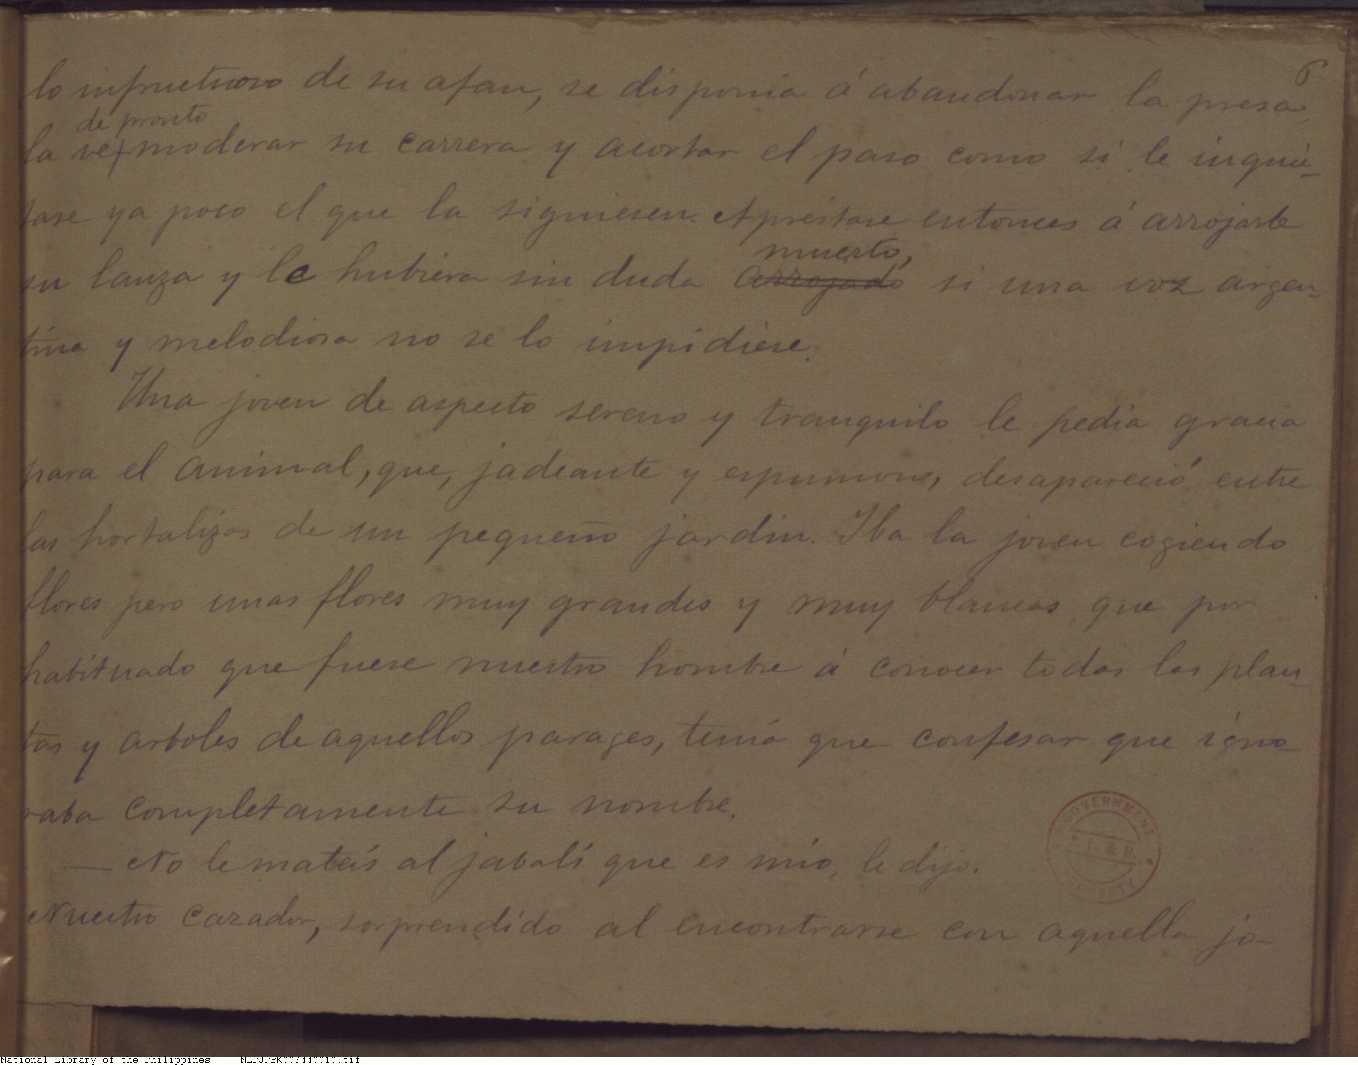 6
lo infructuoso de su afan, se disponia á abandonar la presa
de pronto
la ve moderar su carrera y acortar el paso como si le inquie-
tase ya poco el que la siguiesen. Aprestase entonces á arrojarle
muerto,
su lanza y le hubiera sin duda arrojado si una voz argen-
tina y melodiosa no se lo impidiese.
Una joven de aspecto sereno y tranquilo le pedia gracia
para el animal, que, jadeante y espumoso, desapareció entre
las hortalizas de un pequeño jardin. Iba la joven cogiendo
flores pero unas flores muy grandes y muy blancas que por
habituado que fuese nuestro hombre á conocer todas las plan-
tas y arboles de aquellos parages, tenia que confesar que igno-
raba completamente su nombre.
— No le mateis al jabalí que es mio, le dijo.
Nuestro cazador, sorprendido al encontrarse con aquella jo-
GOVERNMENT
National Library of the Philippines